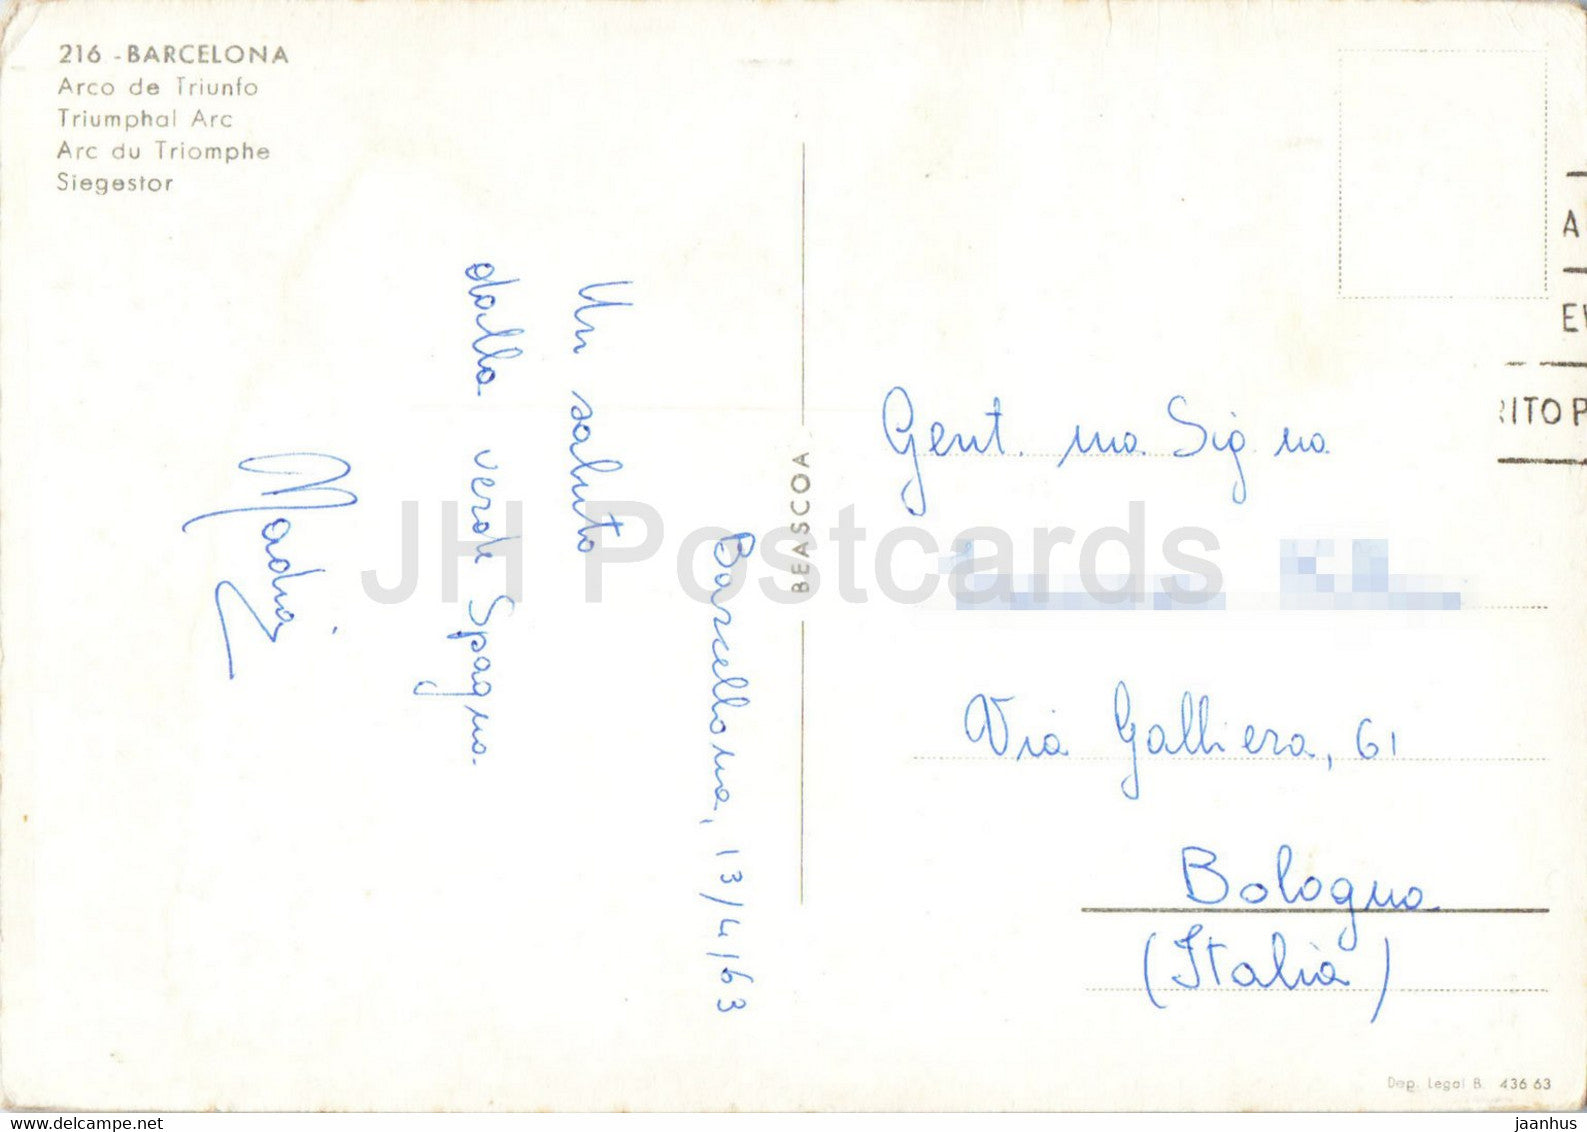 216 - BARCELONA
Arco de Triunfo
Triumphal Arc
Arc du Triomphe
Siegestor
Barcellona, 13/4/63
Un saluto
dalla verde Spagna.
Nadia
BEASCOA
Gent. ma Sig na
Via Galliera, 61
Bologna
(Italia)
Dep. Legal B. 436 63
A
RITO P
JH Postcards
delcampe.net
jaanhus